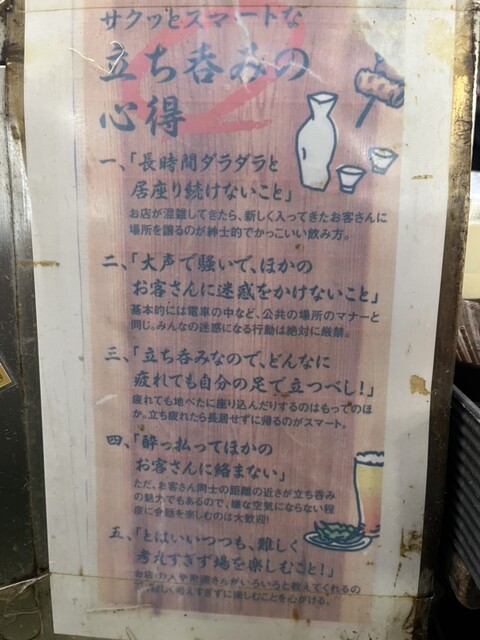 サクッとスマートな
立ち呑みの
心得
一、「長時間ダラダラと
居座り続けないこと」
お店が混雑してきたら、新しく入ってきたお客さんに
場所を譲るのが紳士的でかっこいい飲み方。
二、「大声で騒いで、ほかの
お客さんに迷惑をかけないこと」
基本的には電車の中など、公共の場所のマナーと
同じ。みんなの迷惑になる行動は絶対に厳禁。
三、「立ち呑みなので、どんなに
疲れても自分の足で立つべし!」
疲れても地べたに座り込んだりするのはもってのほ
か。立ち疲れたら長居せずに帰るのがスマート。
四、「酔っ払ってほかの
お客さんに絡まない」
ただ、お客さん同士の距離の近さが立ち呑み
の魅力でもあるので、嫌な空気にならない程
度に会話を楽しむのは大歓迎!
五、「とはいいつつも、難しく
考えすぎず場を楽しむこと!」
お店の人や常連さんがいろいろと教えてくれるの
で、難しく考えすぎずに楽しむことを心がける。